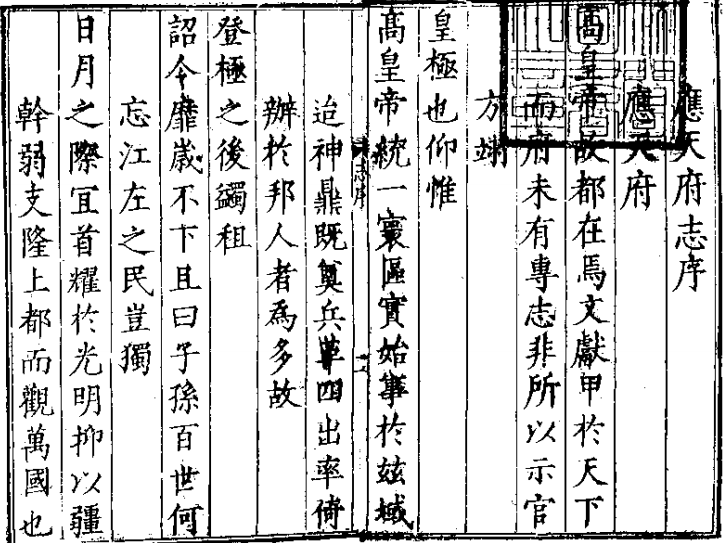 應天府志序
應天府
高皇帝故都在焉文獻甲於天下
而府未有專志非所以示官
方翊
皇極也仰惟
高皇帝統一寰區實始事於兹域
迨神鼎既奠兵革四出率倚
辦於邦人者爲多故
登極之後蠲租
詔令靡歲不下且曰子孫百世何
忘江左之民豈獨
日月之際宜首耀於光明抑以疆
幹弱支隆上都而觀萬國也